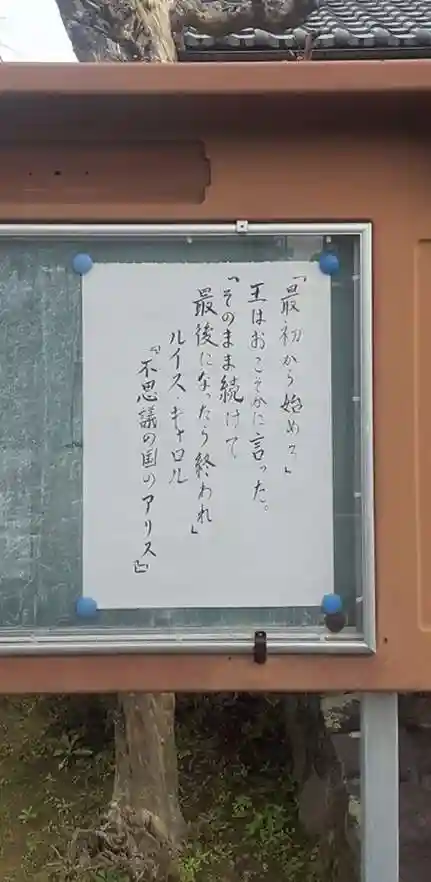 「最初から始めろ」
王はおこそかに言った。
「そのまま続けて
最後になったら終われ」
ルイス・キャロル
『不思議の国のアリス』